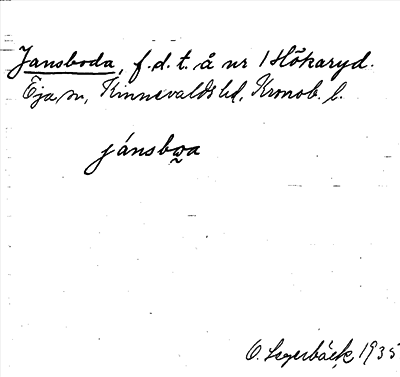 Jansboda, f.d. t. å nr 1 Hökaryd.
Öja sn, Kinnevalds hd, Kronob. l.
jánsbωa
O. Segerbäck 1935